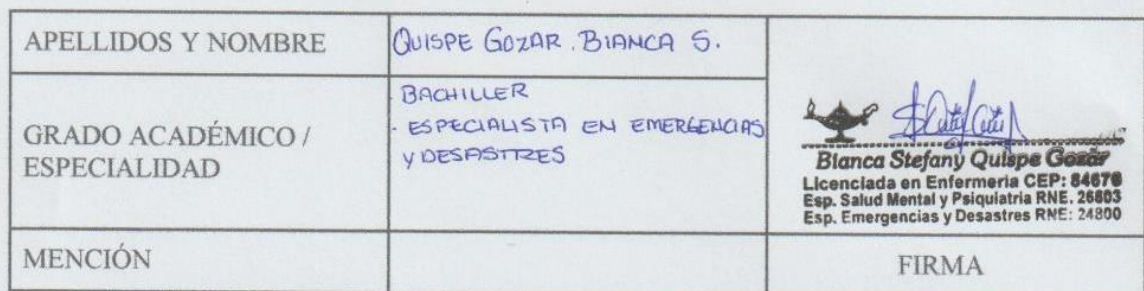 APELLIDOS Y NOMBRE
QUISPE GOZAR, BIANCA S.
GRADO ACADÉMICO /
ESPECIALIDAD
· BACHILLER
· ESPECIALISTA EN EMERGENCIAS
Y DESASTRES
Blanca Stefany Quispe Gozar
Licenciada en Enfermeria CEP: 84670
Esp. Salud Mental y Psiquiatria RNE. 26803
Esp. Emergencias y Desastres RNE: 24800
MENCIÓN
FIRMA